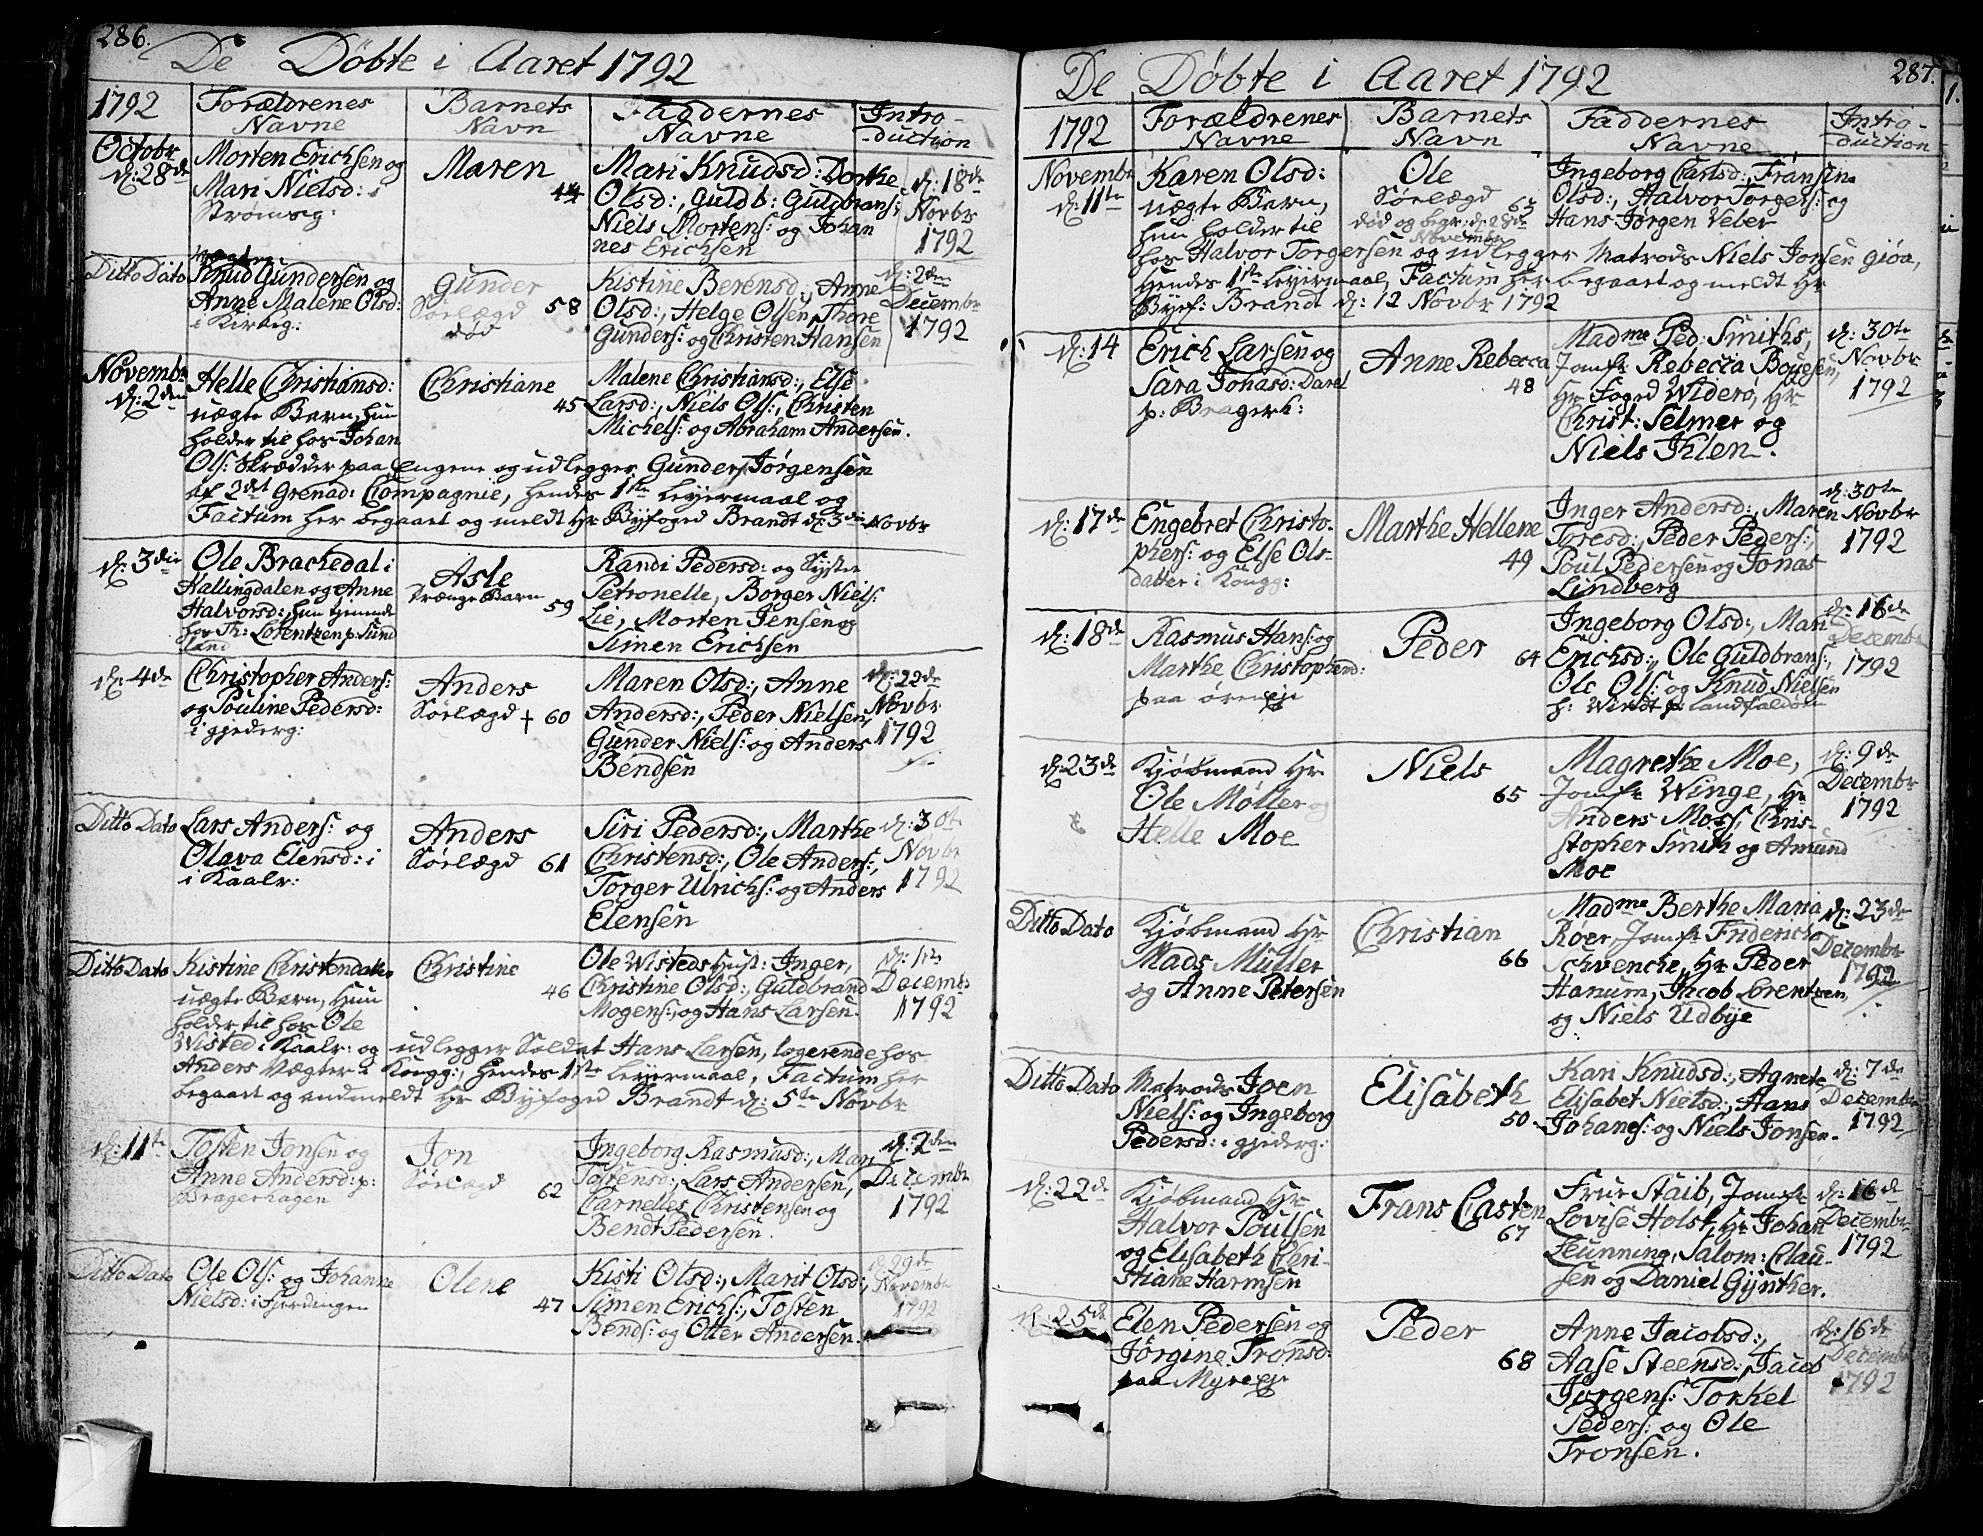 286.
De Döbte i Aaret 1792
1792
Forældrenes
Navne
Barnets
Navn
Faddernes
Navne
Intro-
-duction
Octobr
d: 28de
Morten Erichsen og
Mari Nielsd: i
Strømsg:
Maren
44
Mari Knudsd: Dorthe
Olsd:, Guldb: Guldbrans:,
Niels Mortens: og Johan
nes Erichsen
d: 18de
Novbr
1792
Ditto Dato
Knud Gundersen og
Anne Malene Olsd:
i Kirkeg:
Gunder
Sörlægd
død
58
Kistine Berensd:, Anne
Olsd:, Helge Olsen, Thore
Gunders: og Christen Hansen
d: 2den
Decembr
1792
Novembr
d: 2den
Helle Christiansd:
uægte Barn, hun
holder til hos Johan
Ols: Skrædder paa Engene og udlegger Gunder Jörgensen
af 2det Grenad: Compagnie, hendes 1ste Leyermaal og
Factum her begaaet og meldt Hr Byfoged Brandt d: 3die Novbr
Christiane
45
Malene Christiansd:, Else
Larsd:, Niels Ols:, Christen
Michels: og Abraham Andersen.
d: 3die
Ole Brachedal i
Hallingdalen og Anne
Halvorsd:, hun tjenende
hos Th: Lorentzen p: Sund
land
Asle
Trænge Barn
59
Randi Pedersd: og Syster
Petronelle, Borger Niels:
Lie, Morten Jensen og
Simen Erichsen
d: 4de
Christopher Anders:
og Pouline Pedersd:
i gjederg:
Anders
Sörlægd +
60
Maren Olsd:, Anne
Andersd:, Peder Nielsen,
Gunder Niels: og Anders
Bendsen
d: 22de
Novbr
1792
Ditto Dato
Lars Anders: og
Olava Elensd: i
i Kaalr:
Anders
Sörlægd
61
Siri Pedersd:, Marthe
Christensd:, Ole Anders:,
Torger Ulrichs: og Anders
Elensen
d: 30te
Novbr
1792
Ditto Dato
Kistine Christendatter
uægte Barn, Hun
holder til hos Ole
Wisted i Kaalr: og udlegger Soldat Hans Larsen, logerende hos
Anders Vægter i Kongg:, hendes 1ste Leyermaal, Factum her
begaaet og anmeldt Hr Byfoged Brandt d: 5te Novbr
Christine
46
Ole Wisteds Hust: Inger,
Christine Olsd:, Guldbrand
Mogens:, og Hans Larsen.
Decembr
1792
d: 11te
Tosten Jonsen og
Anne Andersd: p:
Bragerhagen
Jon
Sörlægd
62
Ingeborg Rasmusd:, Mari
Tostensd:, Lars Andersen,
Carnelles Christensen og
Bendt Pedersen.
d: 2den
Decembr
1792
Ditto Dato
Ole Ols: og Johanne
Nielsd: i Fjerdingen
Olene
47
Kisti Olsd:, Marit Olsd:,
Simen Erichs:, Tosten
Bends: og Otter Andersen.
d: 29de
Novembr
1792
287.
De Döbte i Aaret 1792
1792
Forældrenes
Navne
Barnets
Navn
Faddernes
Navne
Intro-
-duction
Novembr
d: 11te
Karen Olsd:
uægte Barn,
hun holder til
hos Halvor Torgersen og udlegger Matrods Niels Jonsen Giøa,
Hendes 1ste Leyermaal, Factum her begaaet og meldt Hr
Byef: Brandt d: 12 Novbr 1792
Ole
Sörlægd
63
død og begr: d: 28de
Novembr
Ingeborg Carlsd:, Fransin
Olsd:, Halvor Torgers: og
Hans Jörgen Veber
d: 14
Erich Larsen og
Sara Johasd: Darel
p: Bragerh:
Anne Rebecca
48
Madme Ped: Smiths,
Jomfr Rebecca Boyesen,
Hr Foged Widerö, Hr
Christ: Selmer og
Niels Iklen.
d: 30te
Novbr
1792
d: 17de
Engebret Christo-
phers: og Else Ols-
datter i Kongg:
Marthe Hellene
49
Inger Andersd:, Maren
Toresd:, Peder Peders:,
Poul Pedersen og Jonas
Lindberg
d: 30te
Novbr
1792
d: 18de
Rasmus Hans: og
Marthe Christophend:
paa örenEje
Peder
64
Ingeborg Olsd:, Mari
Erichsd:, Ole Guldbrans:,
Ole Ols: og Knud Nielsen
h: Windt p: Landfaldöen
d: 16de
Decembr
1792
d: 23de
Kjöbmand Hr
Ole Möller og
Helle Moe
Niels
65
Magrethe Moe,
Jomfr Winge, Hr
Anders Moss, Chris-
stopher Smith og Amund
Moe
d: 9de
Decembr
1792
Ditto Dato
Kjöbmand Hr
Mads Müller
og Anne Petersen
Christian
66
Madme Berthe Maria
Roer, Jomfr Fridenche
Schvencke, Hr Peder
Hanum, Jacob Lorentzen,
og Niels Udbye
d: 23de
Decembr
1792
Ditto Dato
Matrods Joen
Niels: og Ingeborg
Pedersd: i gjederg:
Elisabeth
50
Kari Knudsd:, Agnete
Elisabet Nielsd:, Hans
Johans: og Niels Jonsen.
d: 7de
Decembr
1792
d: 22de
Kjöbmand Hr
Halvor Poulsen
og Elisabeth Chri-
stiane Harmsen
Frans Casten
67
Frue Staib, Jomfr
Lovise Holst, Hr Johan
Leunning, Salom: Clau-
sen og Daniel Gynther.
d: 16de
Decembr
1792
d: 25de
Elen Pedersen og
Jörgine Tronsd:
paa MyreEje
Peder
68
Anne Jacobsd:,
Aase Steensd:, Jacob
Jörgens: Torkel
Peders: og Ole
Tronsen.
d: 16de
Decembr
1792